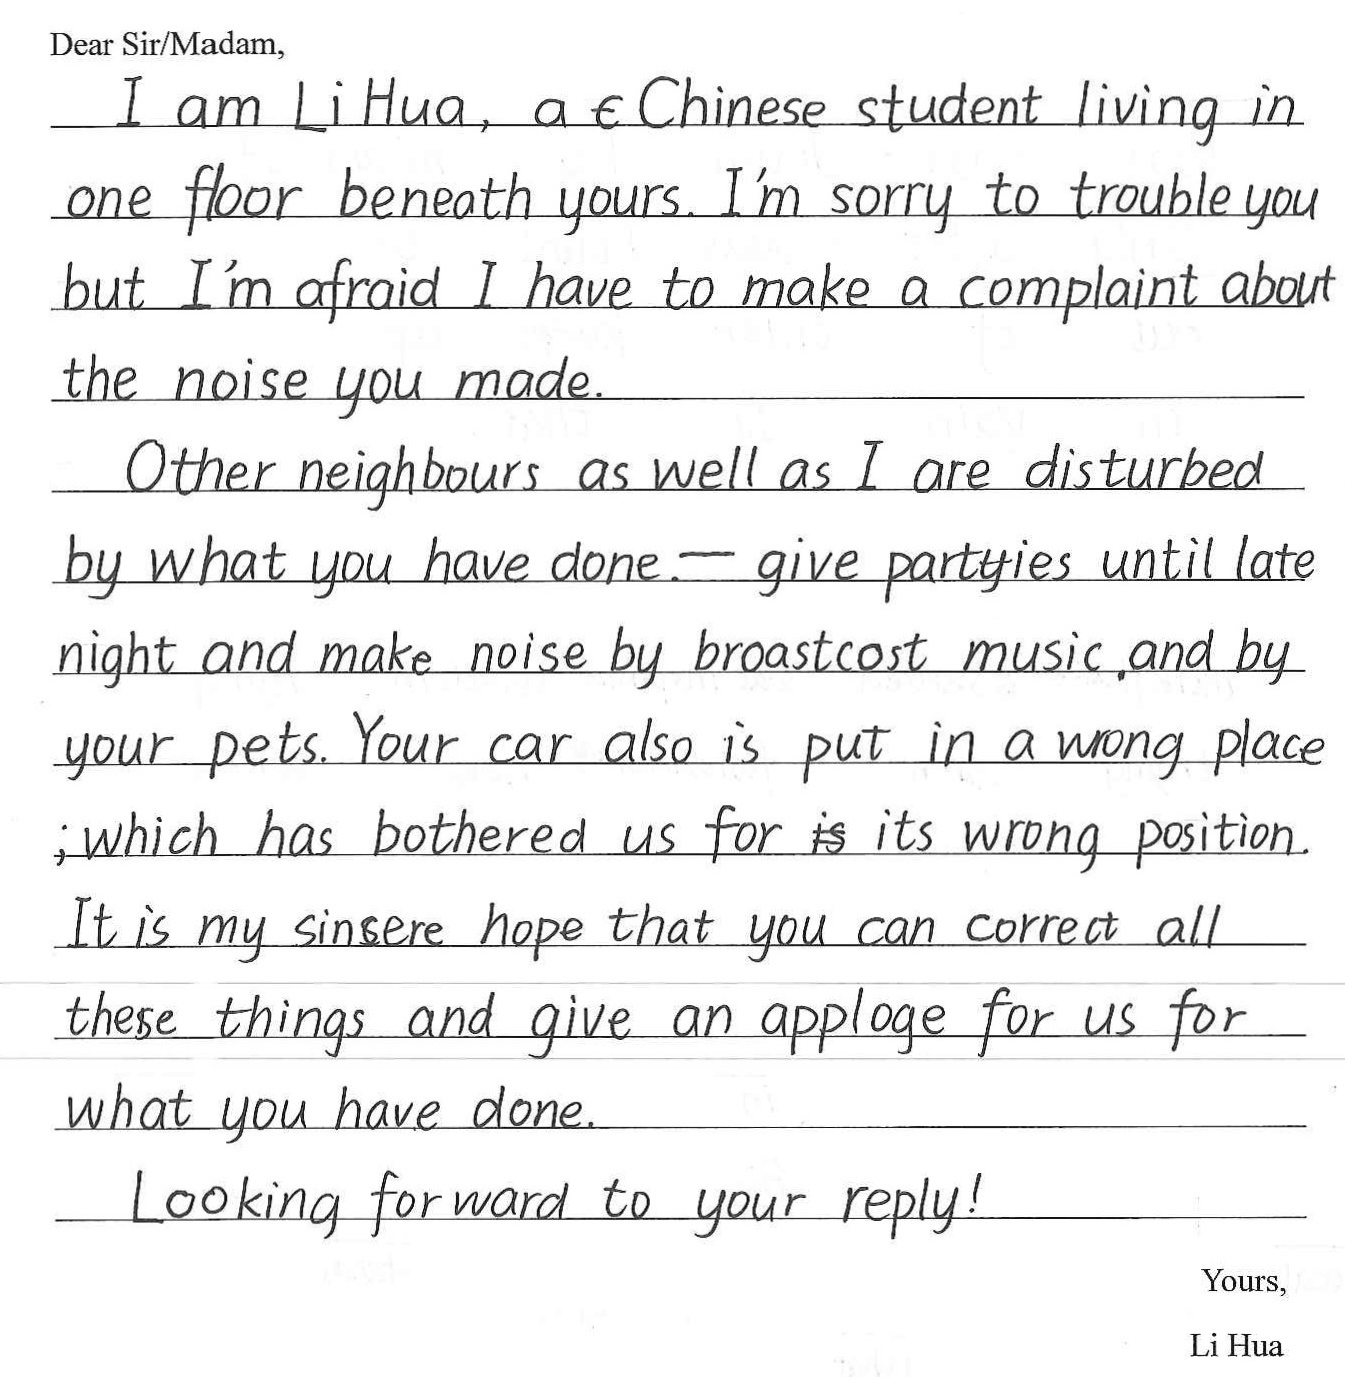 Dear Sir/Madam,
I am Li Hua, a Chinese student living in
one floor beneath yours. I'm sorry to trouble you
but I'm afraid I have to make a complaint about
the noise you made.
Other neighbours as well as I are disturbed
by what you have done.— give partyies until late
night and make noise by broastcost music, and by
your pets. Your car also is put in a wrong place
; which has bothered us for is its wrong position.
It is my sinsere hope that you can correct all
these things and give an apploge for us for
what you have done.
Looking forward to your reply!
Yours,
Li Hua